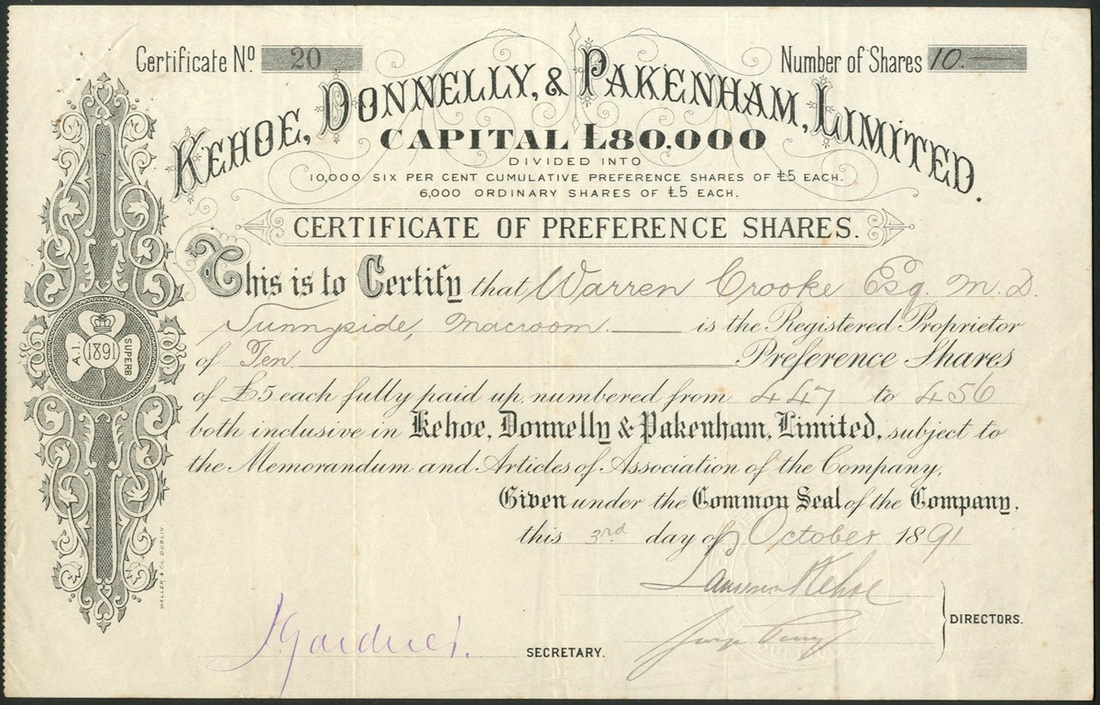 Certificate No. 20
Number of Shares 10.
KEHOE, DONNELLY, & PAKENHAM, LIMITED.
CAPITAL £80.000
DIVIDED INTO
10,000 SIX PER CENT CUMULATIVE PREFERENCE SHARES OF £5 EACH.
6,000 ORDINARY SHARES OF £5 EACH.
CERTIFICATE OF PREFERENCE SHARES.
This is to Certify that Warren Crooke Esq. M.D.
Sunnyside, Macroom. is the Registered Proprietor
of Ten Preference Shares
of £5 each fully paid up, numbered from 447 to 456
both inclusive in Kehoe, Donnelly & Pakenham, Limited, subject to
the Memorandum and Articles of Association of the Company.
Given under the Common Seal of the Company.
this 3rd day of October 1891
Kehoe
DIRECTORS.
J Gardner.
SECRETARY.
A.1.
1891
SUPERB
WALLER & CO. DUBLIN